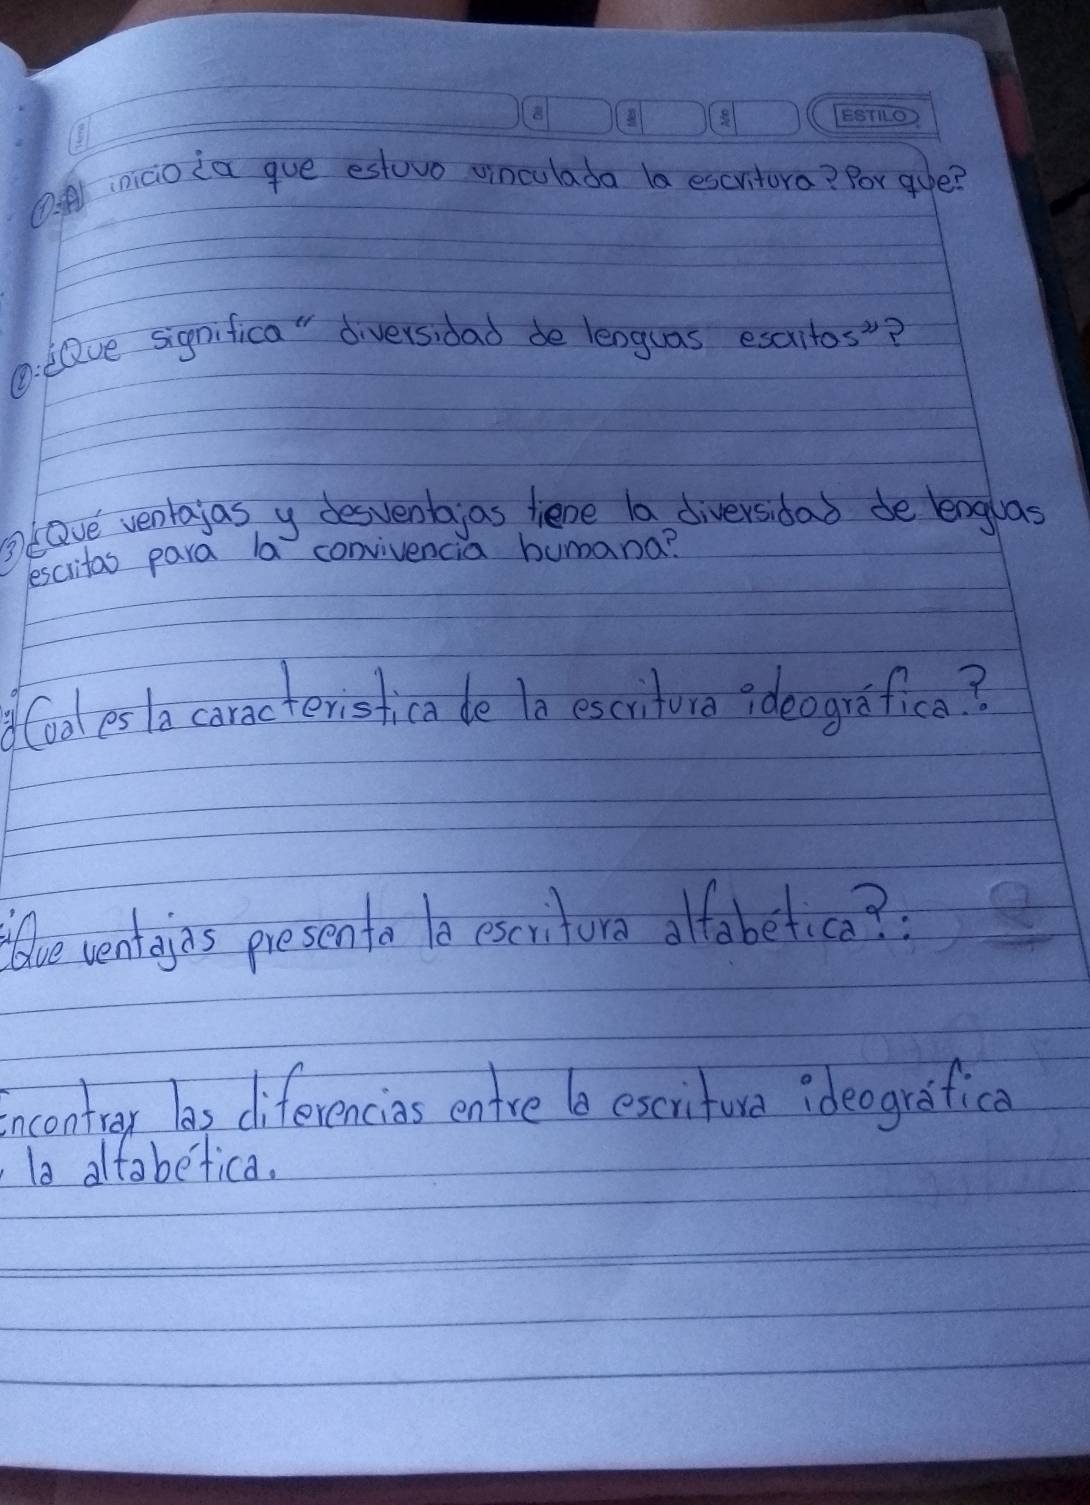 ESTILO
①.Al inicio ¿a que estuvo vinculada la escritura? Por que?
②.¿Que significa "diversidad de lenguas escritas"?
③ ¿Qué ventajas y desventajas tiene la diversidad de lenguas
escritas para la convivencia humana?
¿Cual es la caracteristica de la escritura ideográfica?
¿Que ventajas presenta la escritura alfabética?:
Encontrar las diferencias entre la escritura ideográfica
la alfabética.